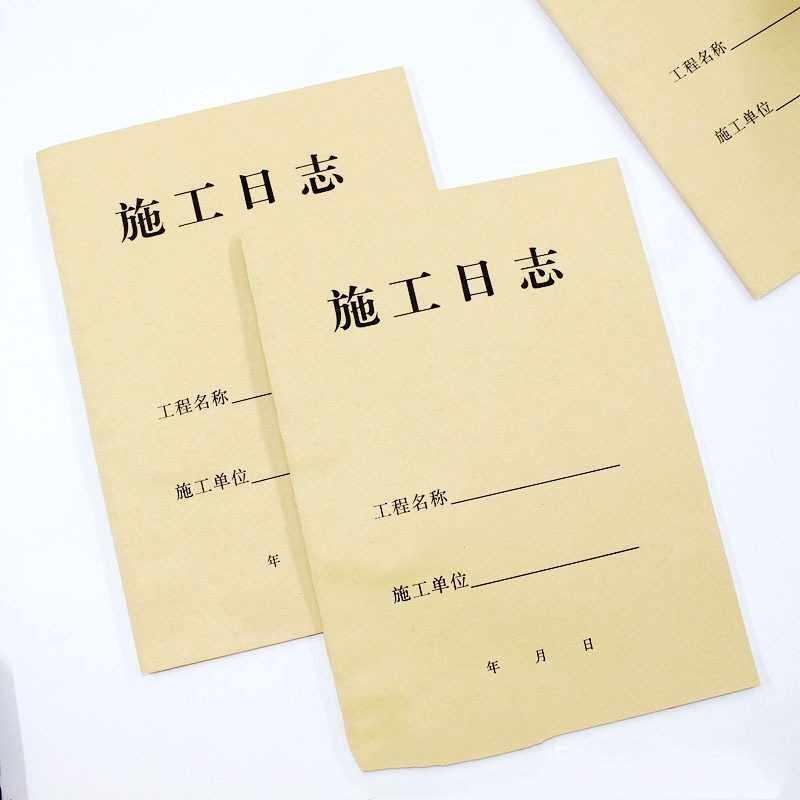 施工日志
工程名称
施工单位
年
施工日志
工程名称
施工单位
年 月 日
工程名称
施工单位